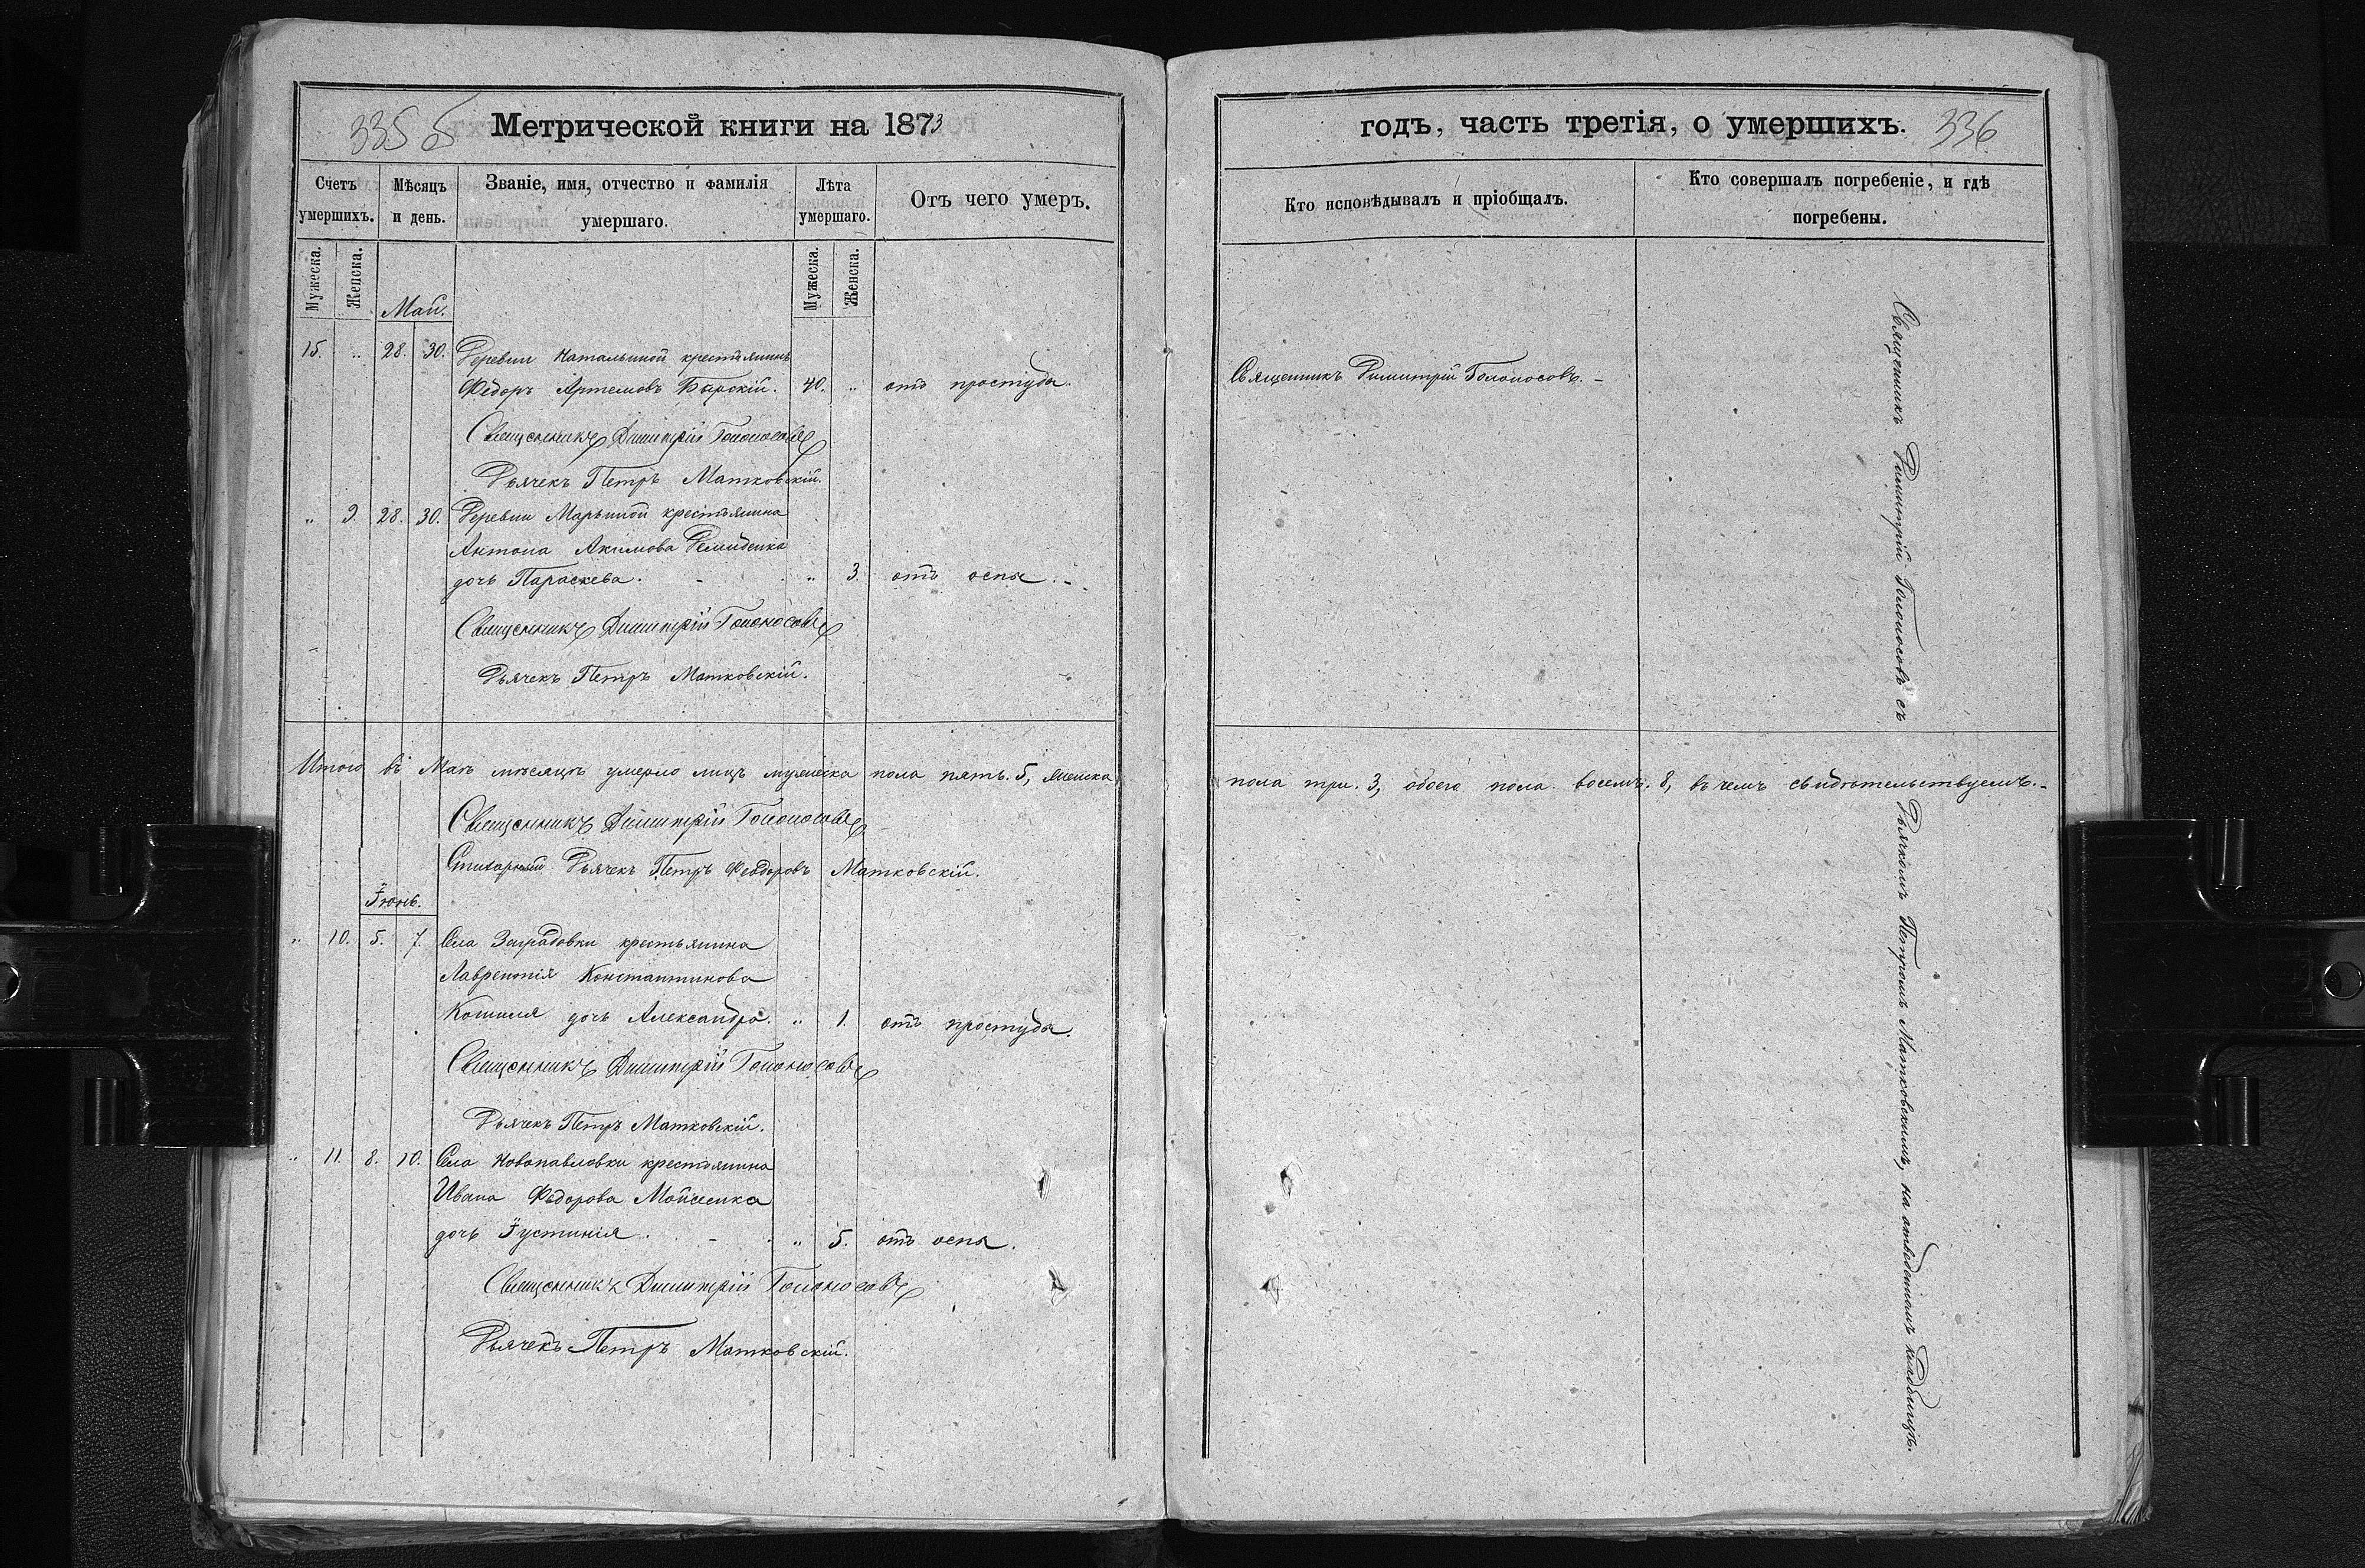 335 б
Метрической книги на 1873
Счетъ умершихъ.
Мѣсяцъ и день.
Званіе, имя, отчество и фамилія умершаго.
Лѣта умершаго.
Отъ чего умеръ.
Мужеска.
Женска.
Мужеска.
Женска.
Май.
15. „ 28. 30. Деревни Натальиной крестьянинъ
Ѳедоръ Артемовъ Барскій. 40. „ отъ простуды.
Священникъ Димитрій Голоносовъ
Дьячекъ Петръ Матковскій.
„ 9. 28. 30. Деревни Марьиной крестьянина
Антона Акимова Демиденка
дочь Параскева. - „ 3. отъ оспы. -
Священникъ Димитрій Голоносовъ
Дьячекъ Петръ Матковскій.
Итого въ Маѣ мѣсяцѣ умерло лицъ мужеска пола пять. 5, женска
Священникъ Димитрій Голоносовъ
Стихарный Дьячекъ Петръ Феодоровъ Матковскій.
Іюнь.
„ 10. 5. 7. Села Заградовки крестьянина
Лаврентія Константинова
дочь Александра. „ 1. отъ простуды.
Священникъ Димитрій Голоносовъ
Дьячекъ Петръ Матковскій.
„ 11. 8. 10. Села Новопавловки крестьянина
Ивана Ѳедорова Мойсеенка
дочь Іустинія. - „ 5. отъ оспы.
Священникъ Димитрій Голоносовъ
Дьячекъ Петръ Матковскій.
годъ, часть третія, о умершихъ. 336
Кто исповѣдывалъ и пріобщалъ.
Кто совершалъ погребеніе, и гдѣ погребены.
Священникъ Димитрій Голоносовъ. -
пола три. 3, обоего пола восемь. 8, въ чемъ свидѣтельствуемъ. -
Священникъ Димитрій Голоносовъ съ Дьячкомъ Петромъ Матковскимъ, на отведенномъ кладбищѣ.